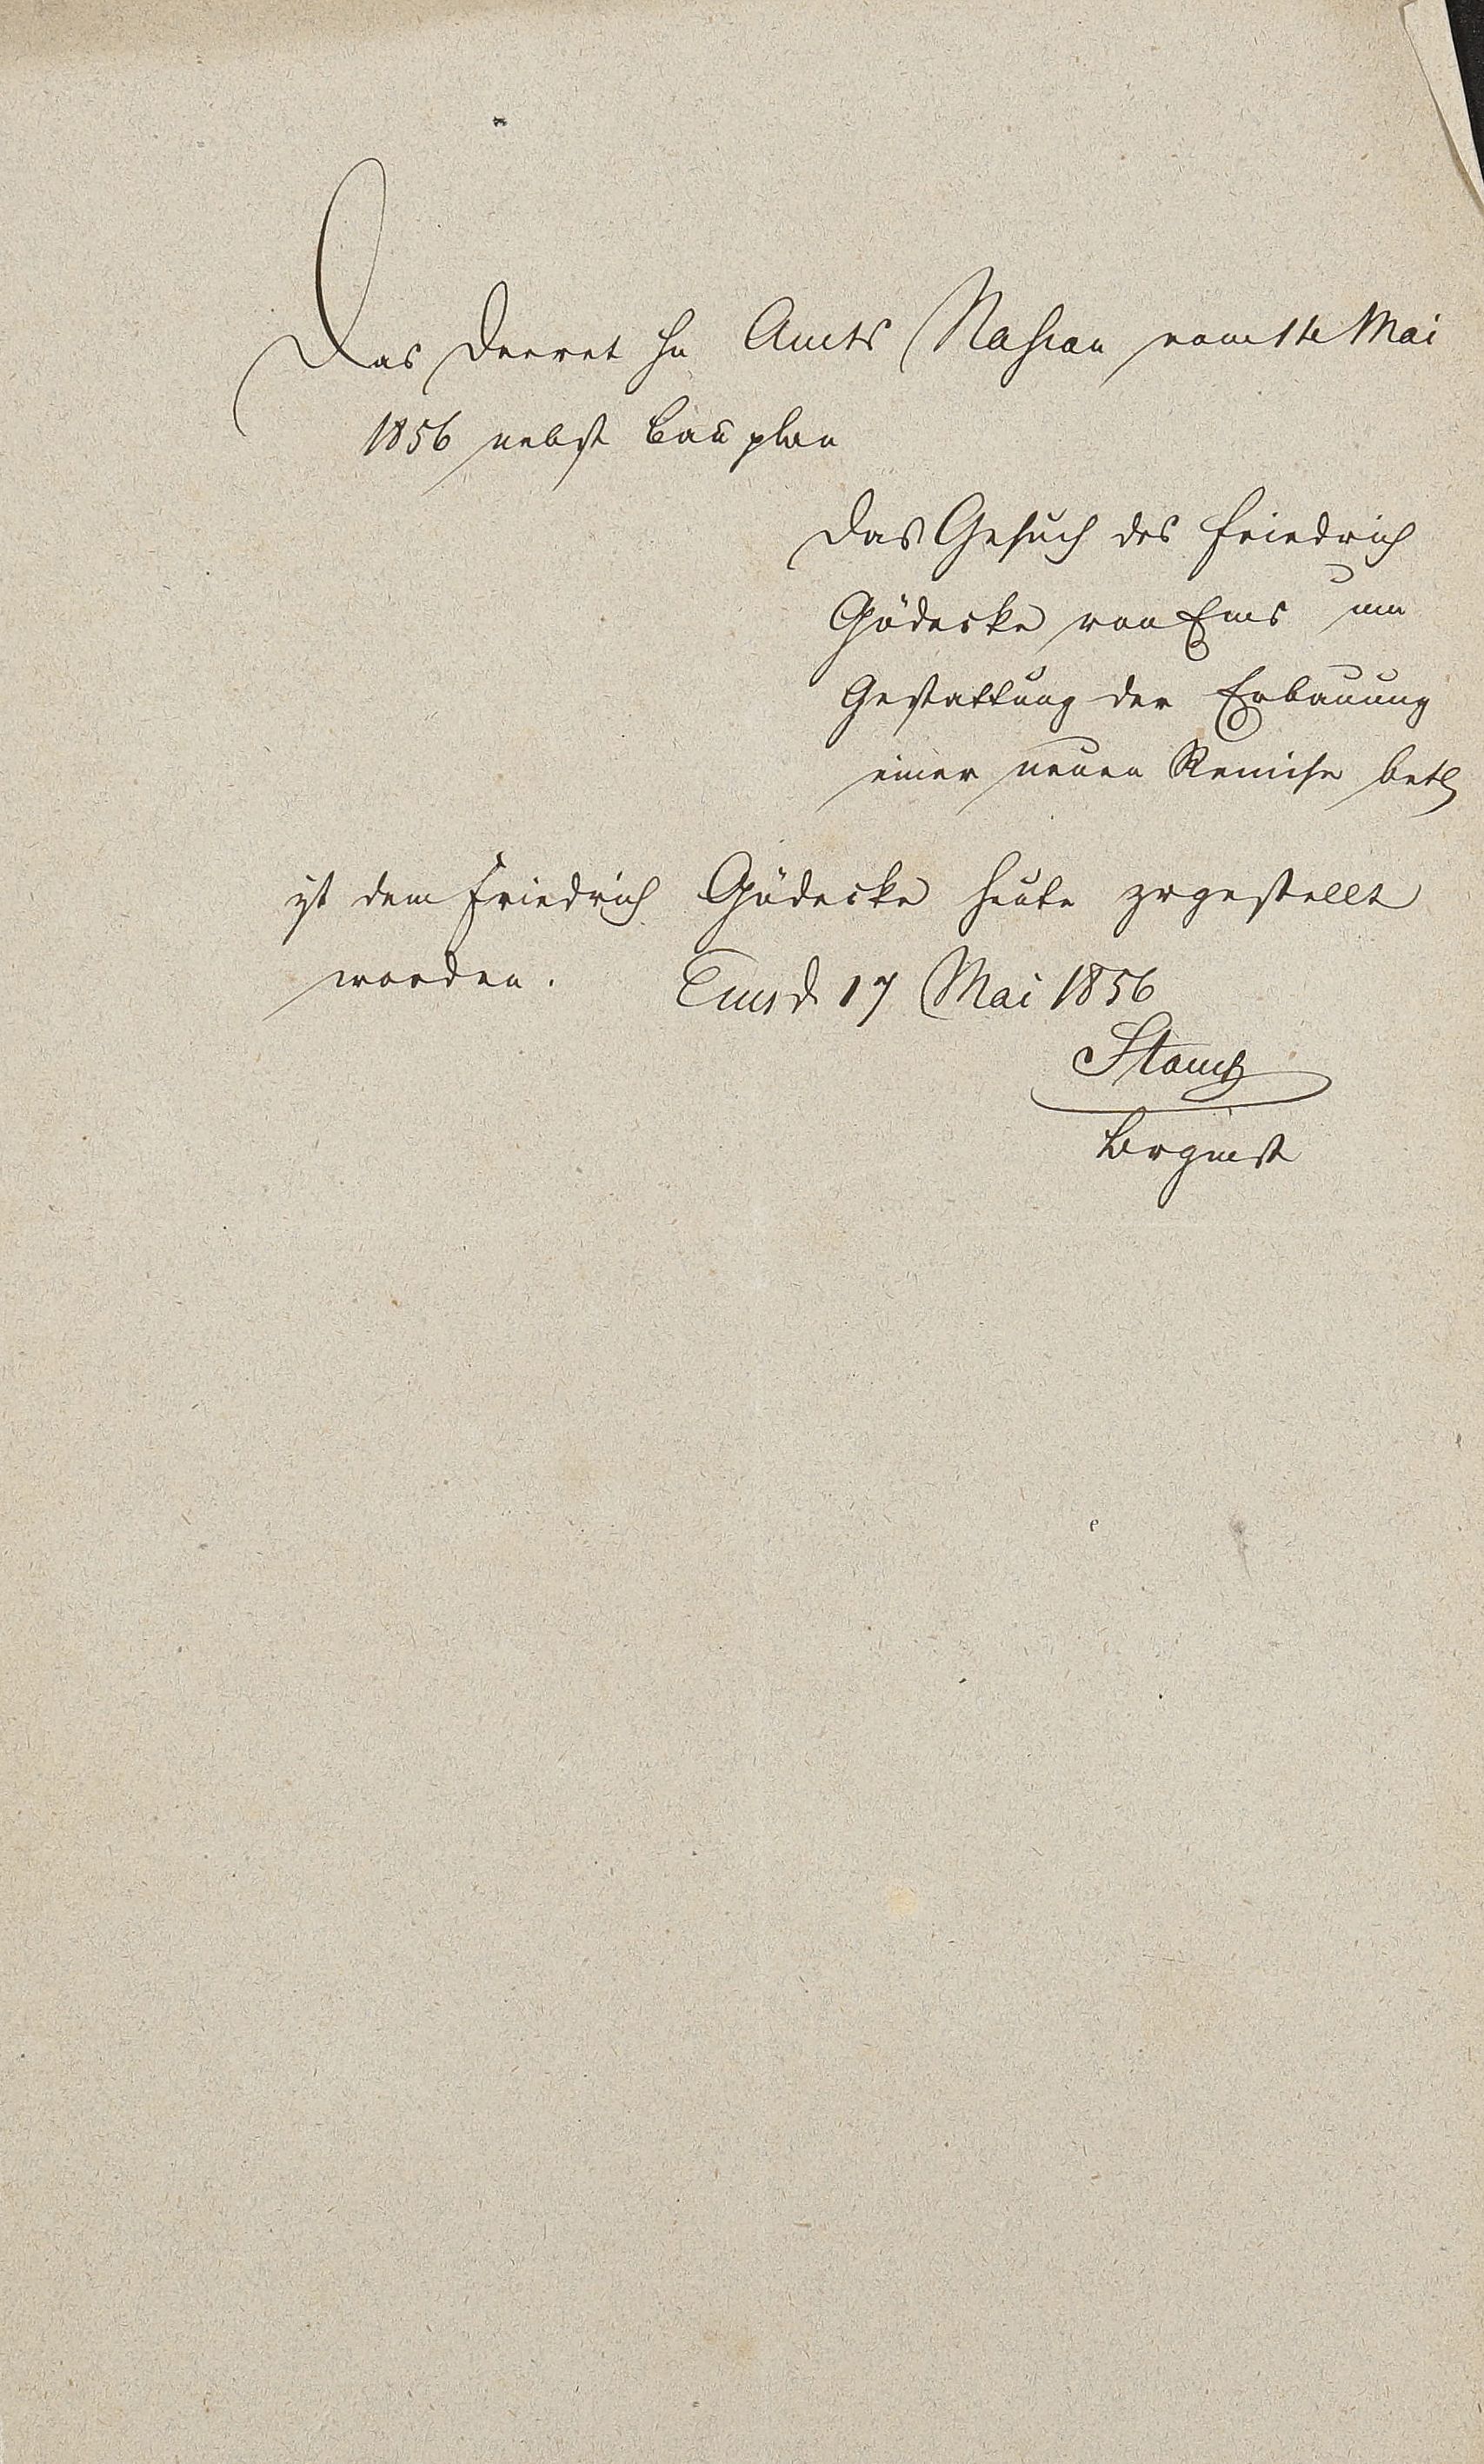 Das Decret Hn Amts Nassau vom 14 Mai
1856 nebst Bauplan
das Gesuch des Friedrich
Gödecke von Ems um
Gestattung der Erbauung
einer neuen Remise betr
ist dem Friedrich Gödecke heute zugestellt
worden. Ems d. 17 Mai 1856
Brgmst